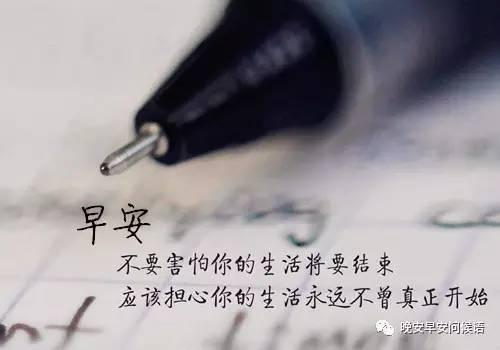 早安
不要害怕你的生活将要结束
应该担心你的生活永远不曾真正开始
晚安早安问候语